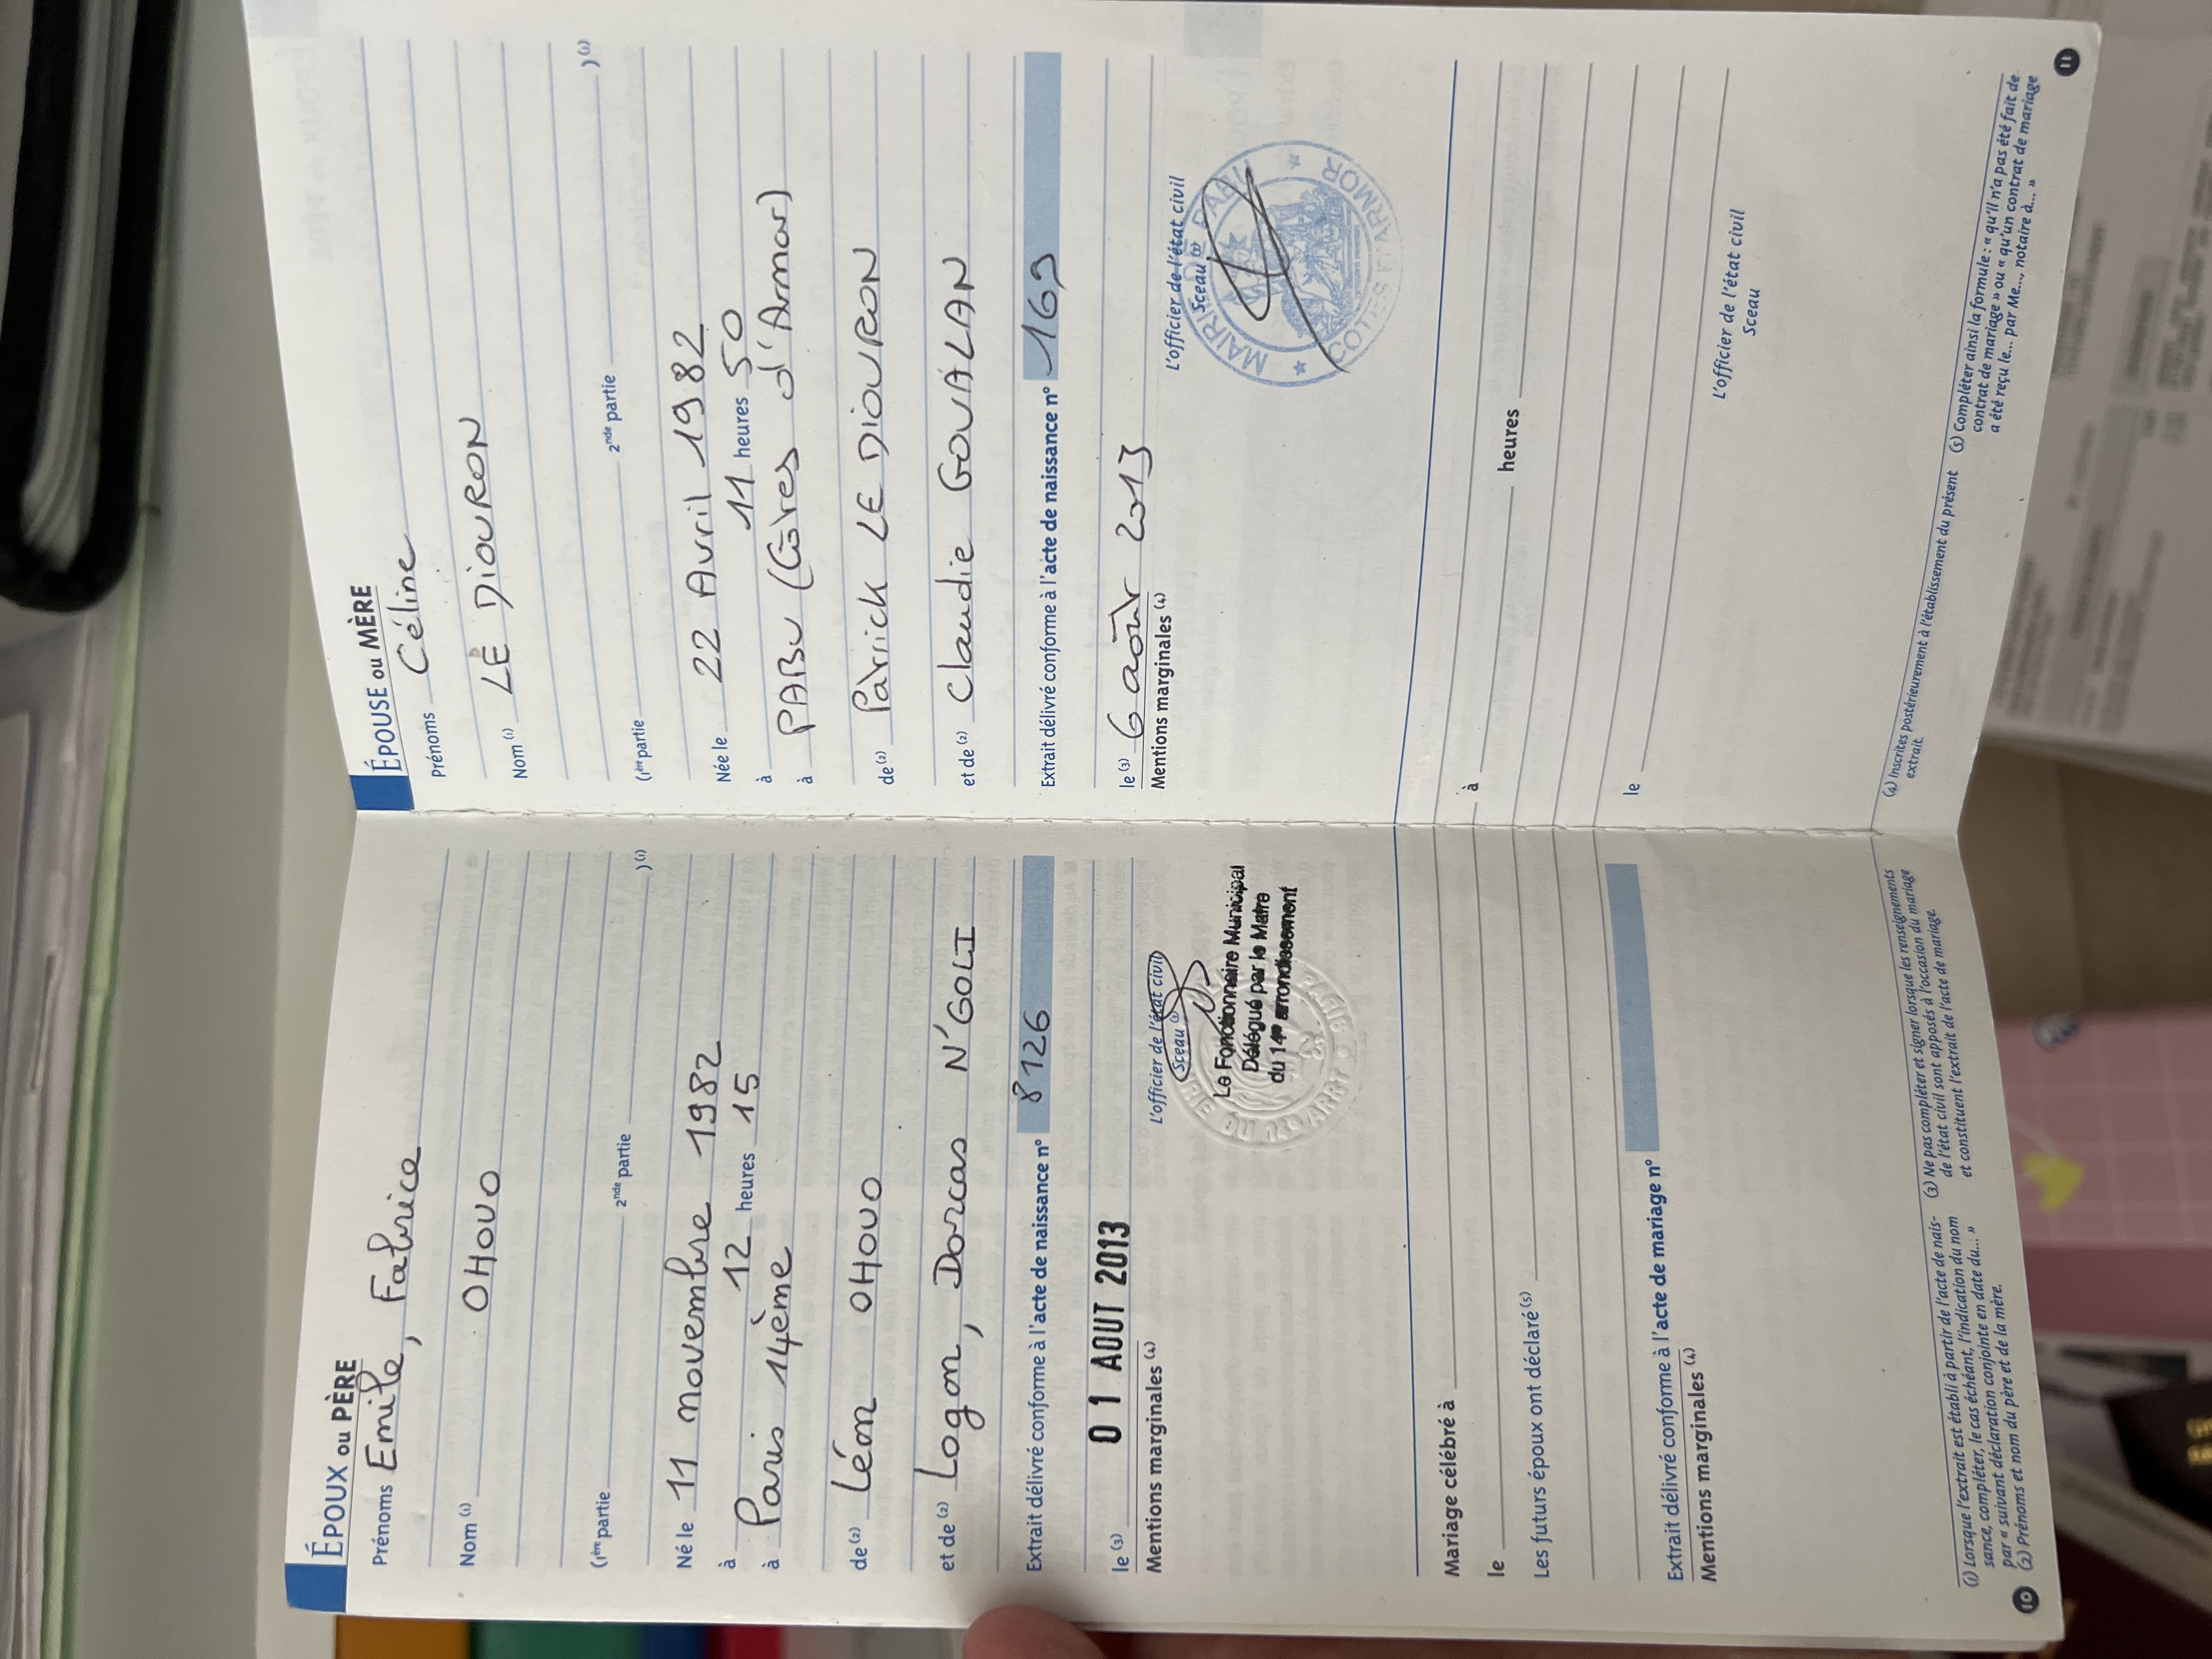 ÉPOUX ou PÈRE
Prénoms Emile, Fabrice
Nom (1) OHOUO
(1ère partie 2nde partie )(1)
Né le 11 novembre 1982
à 12 heures 15
à Paris 14ème
de (2) Léon OHOUO
et de (2) Logon, Dorcas N'GOLI
Extrait délivré conforme à l'acte de naissance n° 8126
le (3) 01 AOUT 2013
Mentions marginales (4)
L'officier de l'état civil
Sceau (3)
Le Fonctionnaire Municipal
Délégué par le Maire
du 14e arrondissement
Mariage célébré à
le
Les futurs époux ont déclaré (5)
Extrait délivré conforme à l'acte de mariage n°
Mentions marginales (4)
(1) Lorsque l'extrait est établi à partir de l'acte de nais-
sance, compléter, le cas échéant, l'indication du nom
par « suivant déclaration conjointe en date du... »
(2) Prénoms et nom du père et de la mère.
(3) Ne pas compléter et signer lorsque les renseignements
de l'état civil sont apposés à l'occasion du mariage
et constituent l'extrait de l'acte de mariage.
10
ÉPOUSE ou MÈRE
Prénoms Céline
Nom (1) LE DIOURON
(1ère partie 2nde partie )(1)
Née le 22 Avril 1982
à 11 heures 50
à PABU (Côtes d'Armor)
de (2) Patrick LE DIOURON
et de (2) Claudie GOUALAN
Extrait délivré conforme à l'acte de naissance n° 169
le (3) 6 août 2013
Mentions marginales (4)
L'officier de l'état civil
Sceau (3)
MAIRIE DE PABU
CÔTES D'ARMOR
à heures
le
L'officier de l'état civil
Sceau
(4) Inscrites postérieurement à l'établissement du présent
extrait.
(5) Compléter ainsi la formule : « qu'il n'a pas été fait de
contrat de mariage » ou « qu'un contrat de mariage
a été reçu le... par Me..., notaire à... »
11